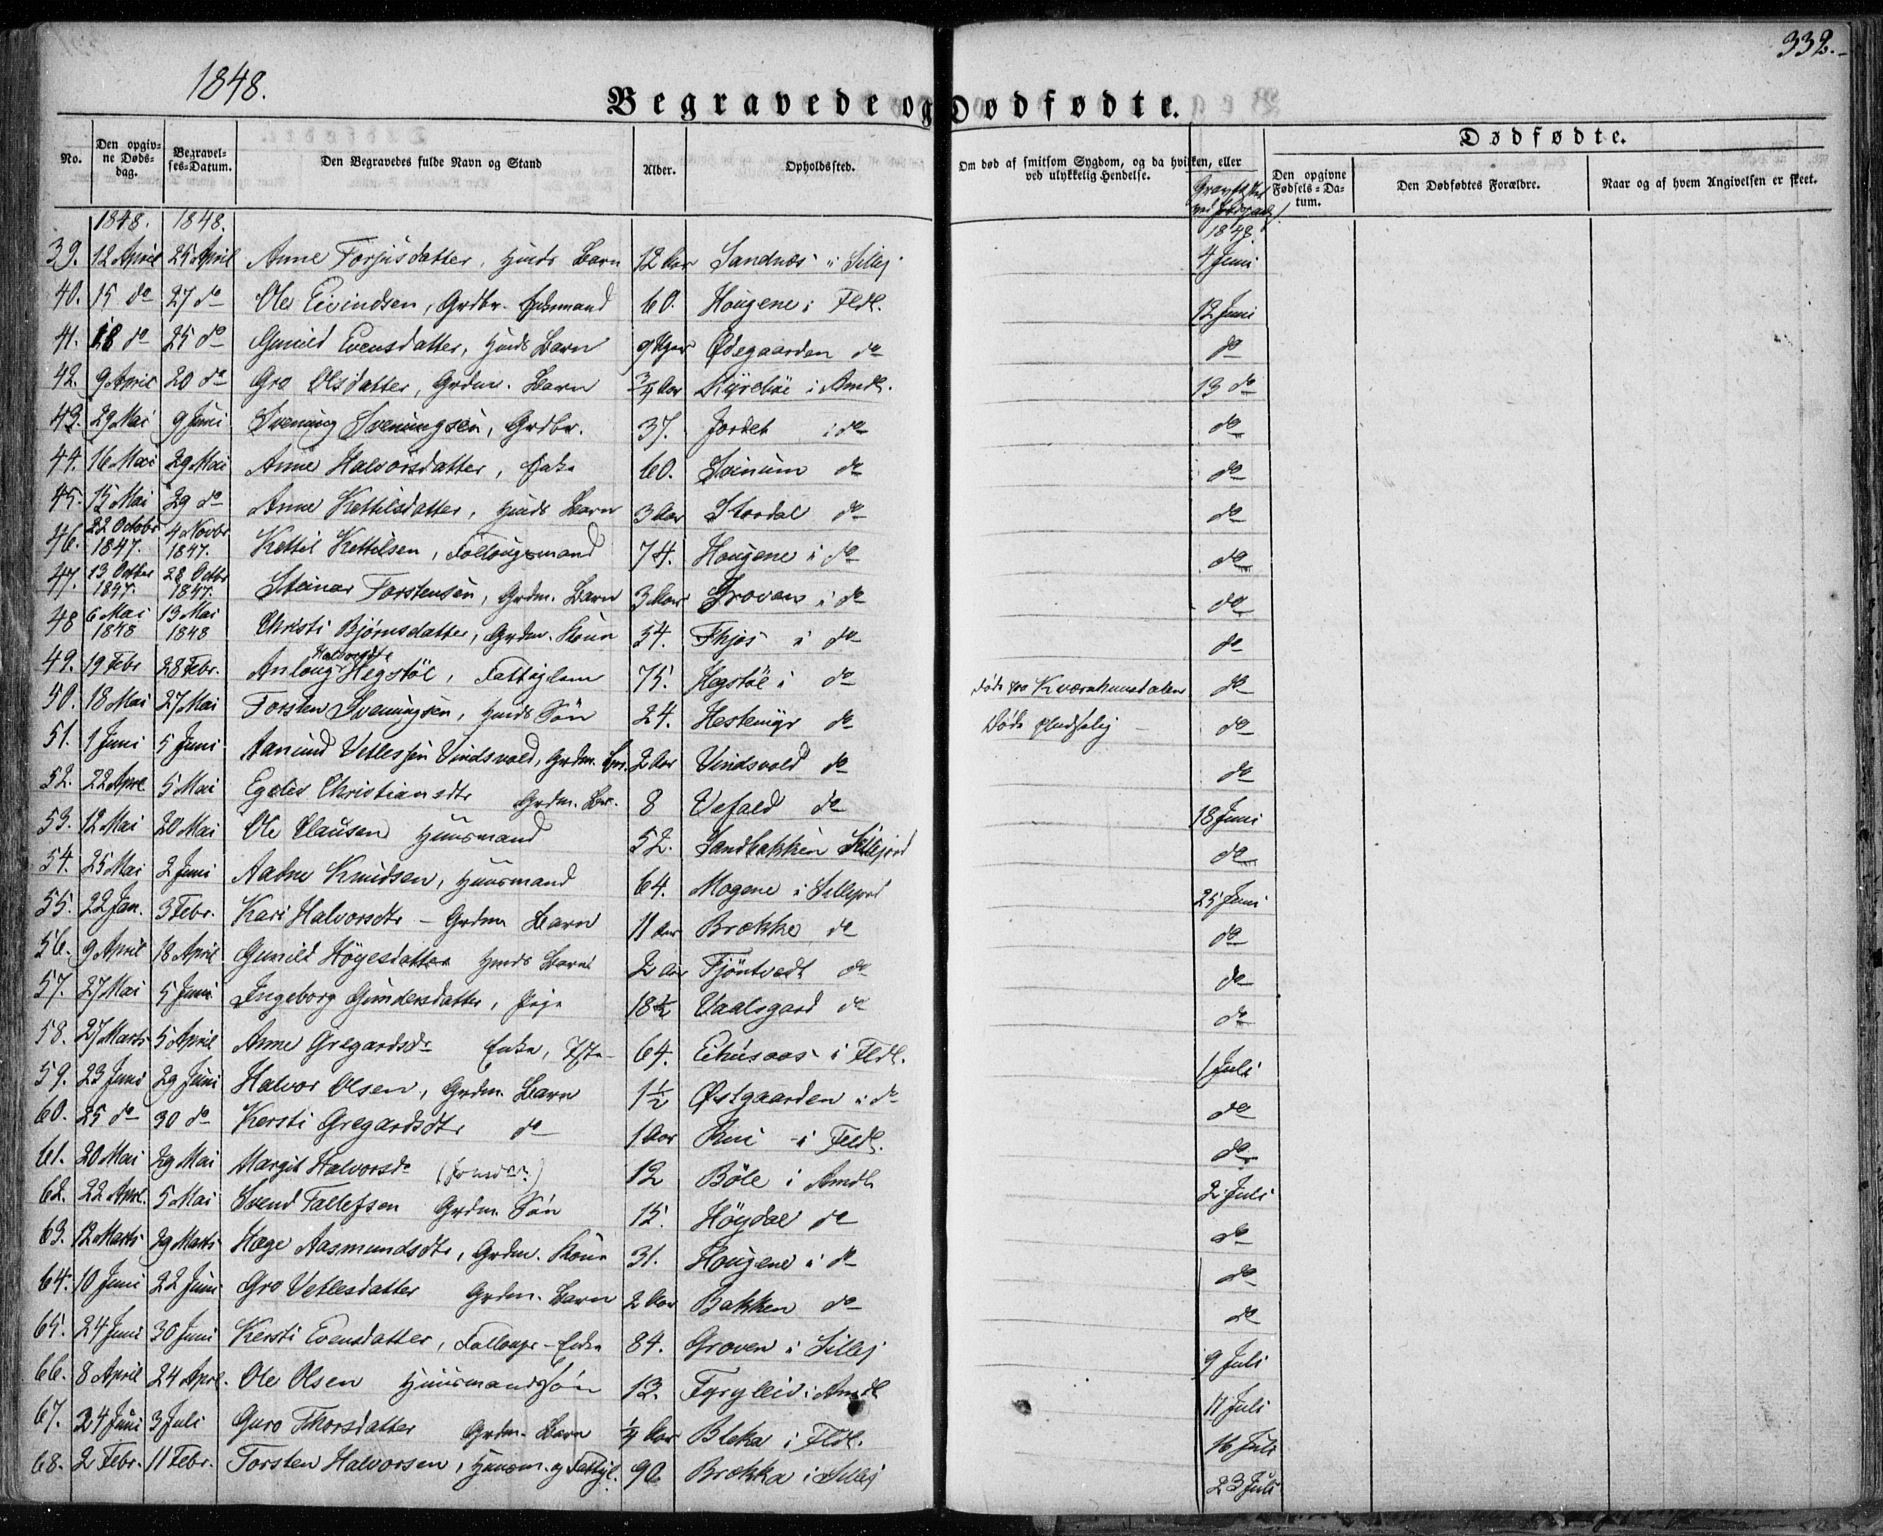 332.
1848.
Begravede og Dødfødte.
No. Den opgivne Døds-dag. Begravelses-Datum. Den Begravedes fulde Navn og Stand Alder. Opholdssted. Om død af smitsom Sygdom, og da hvilken, eller ved ulykkelig Hendelse. Dødfødte. Den opgivne Fødsels-Datum. Den Dødfødtes Forældre. Naar og af hvem Angivelsen er skeet.
1848. 1848. 1848.
39. 12 April 25 April Anne Torjusdatter, Hmds Barn 12 Aar Sandnæs i Sillej 4 Juni
40. 15 do 27 do Ole Eivindsen, Grdbr. Enkemand 60. Hougene i Fldl. 12 Juni
41. 18 do 25 do Gunild Evensdatter, Hmds Barn 9 Uger Ødegaarden do do
42. 9 April 20 do Gro Olsdatter, Grdm. Barn 3/4 Aar i Amdl. 13 do
43. 29 Mai 9 Juni Svenung Svenungsen, Grdbr. 37. Jordet i do do
44. 16 Mai 29 Mai Anne Halvorsdatter, Enke 60. Svinum do do
45. 15 Mai 29 do Anne Kettilsdatter, Hmds Barn 3 Aar Stordal do do
46. 22 Octobr 1847. 4 Novbr 1847. Kettil Kettilsen, Follougsmand 74. Hougene i do do
47. 13 Octber 1847. 28 Octbr 1847. Steinar Torstensen, Grdm. Barn 3 Aar Groven i do do
48 6 Mai 1848 13 Mai 1848 Christi Bjørnsdatter, Grdm. Kone 34. i do do
49. 19 Febr 28 Febr. Anloug Halvorsdtr Hegstøl, Fattiglem 75. Hegstøl i do do
50. 18 Mai 27 Mai Torsten Svenungsen, Hmds Søn 24. Hestemyr do Døde paa do
51. 1 Juni 5 Juni Aanund Vetlessen Vindsvold, Grdm. Brn. 2 Aar Vindsvold do Døde pludselig do
52. 22 Aprl 5 Mai Egelev Christiansdtr Grdm. Br. 8 Vefald do do
53. 12 Mai 20 Mai Ole Clausen Huusmand 52. Sandbakken Sillejord 18 Juni
54. 25 Mai 2 Juni Aadne Knudsen, Huusmand 64. Mogene i Sillejord do
55. 22 Jan. 3 Febr. Kari Halvorsdtr – Grdm Barn 11 Aar Brækka do 25 Juni
56. 9 April 18 April Gunild Høyesdatter Hmds Barn 2 Aar Tjöntvedt do do
57. 27 Mai 5 Juni Ingeborg Gundersdatter, Pige 18 1/2 Vaalsgard do do
58. 27 Marts 5 April Anne Gregardsdr Enke, 64. i Fldl. do
59. 23 Juni 29 Juni Halvor Olsen, Grdm Barn 1 1/2 Østgaarden i do 1 Juli
60. 25 do 30 do Kersti Gregardsdtr do 1 Aar Rui i Fldl. do
61. 20 Mai 29 Mai Margit Halvorsdr 12 Böle i Amdl do
62. 22 Aprl. 5 Mai Svend Tallefsen Grdm. Søn 15. Höydal do 2 Juli
63. 12 Marts 29 Marts Hæge Aasmundsdtr, Grdm. Kone 31. Hougene i do do
64. 10 Juni 22 Juni Gro Vetlesdatter Grdm. Barn 2 Aar Bakken do do
65. 24 Juni 30 Juni Kersti Evensdatter, Follougs-Enke 84. Groven i Sillej do
66. 8 April 24 Aprl. Ole Olsen Huusmandssøn 13. i Amdl 9 Juli
67. 24 Juni 3 Juli Guro Thorsdatter Grdm. Barn 1/4 Aar Bleka i Fldl. 11 Juli
16 Juli
68. 2 Febr. 11 Febr. Torsten Halvorsen, Huusm. og Fattigl. 90 Brækka i Sillej 23 Juli